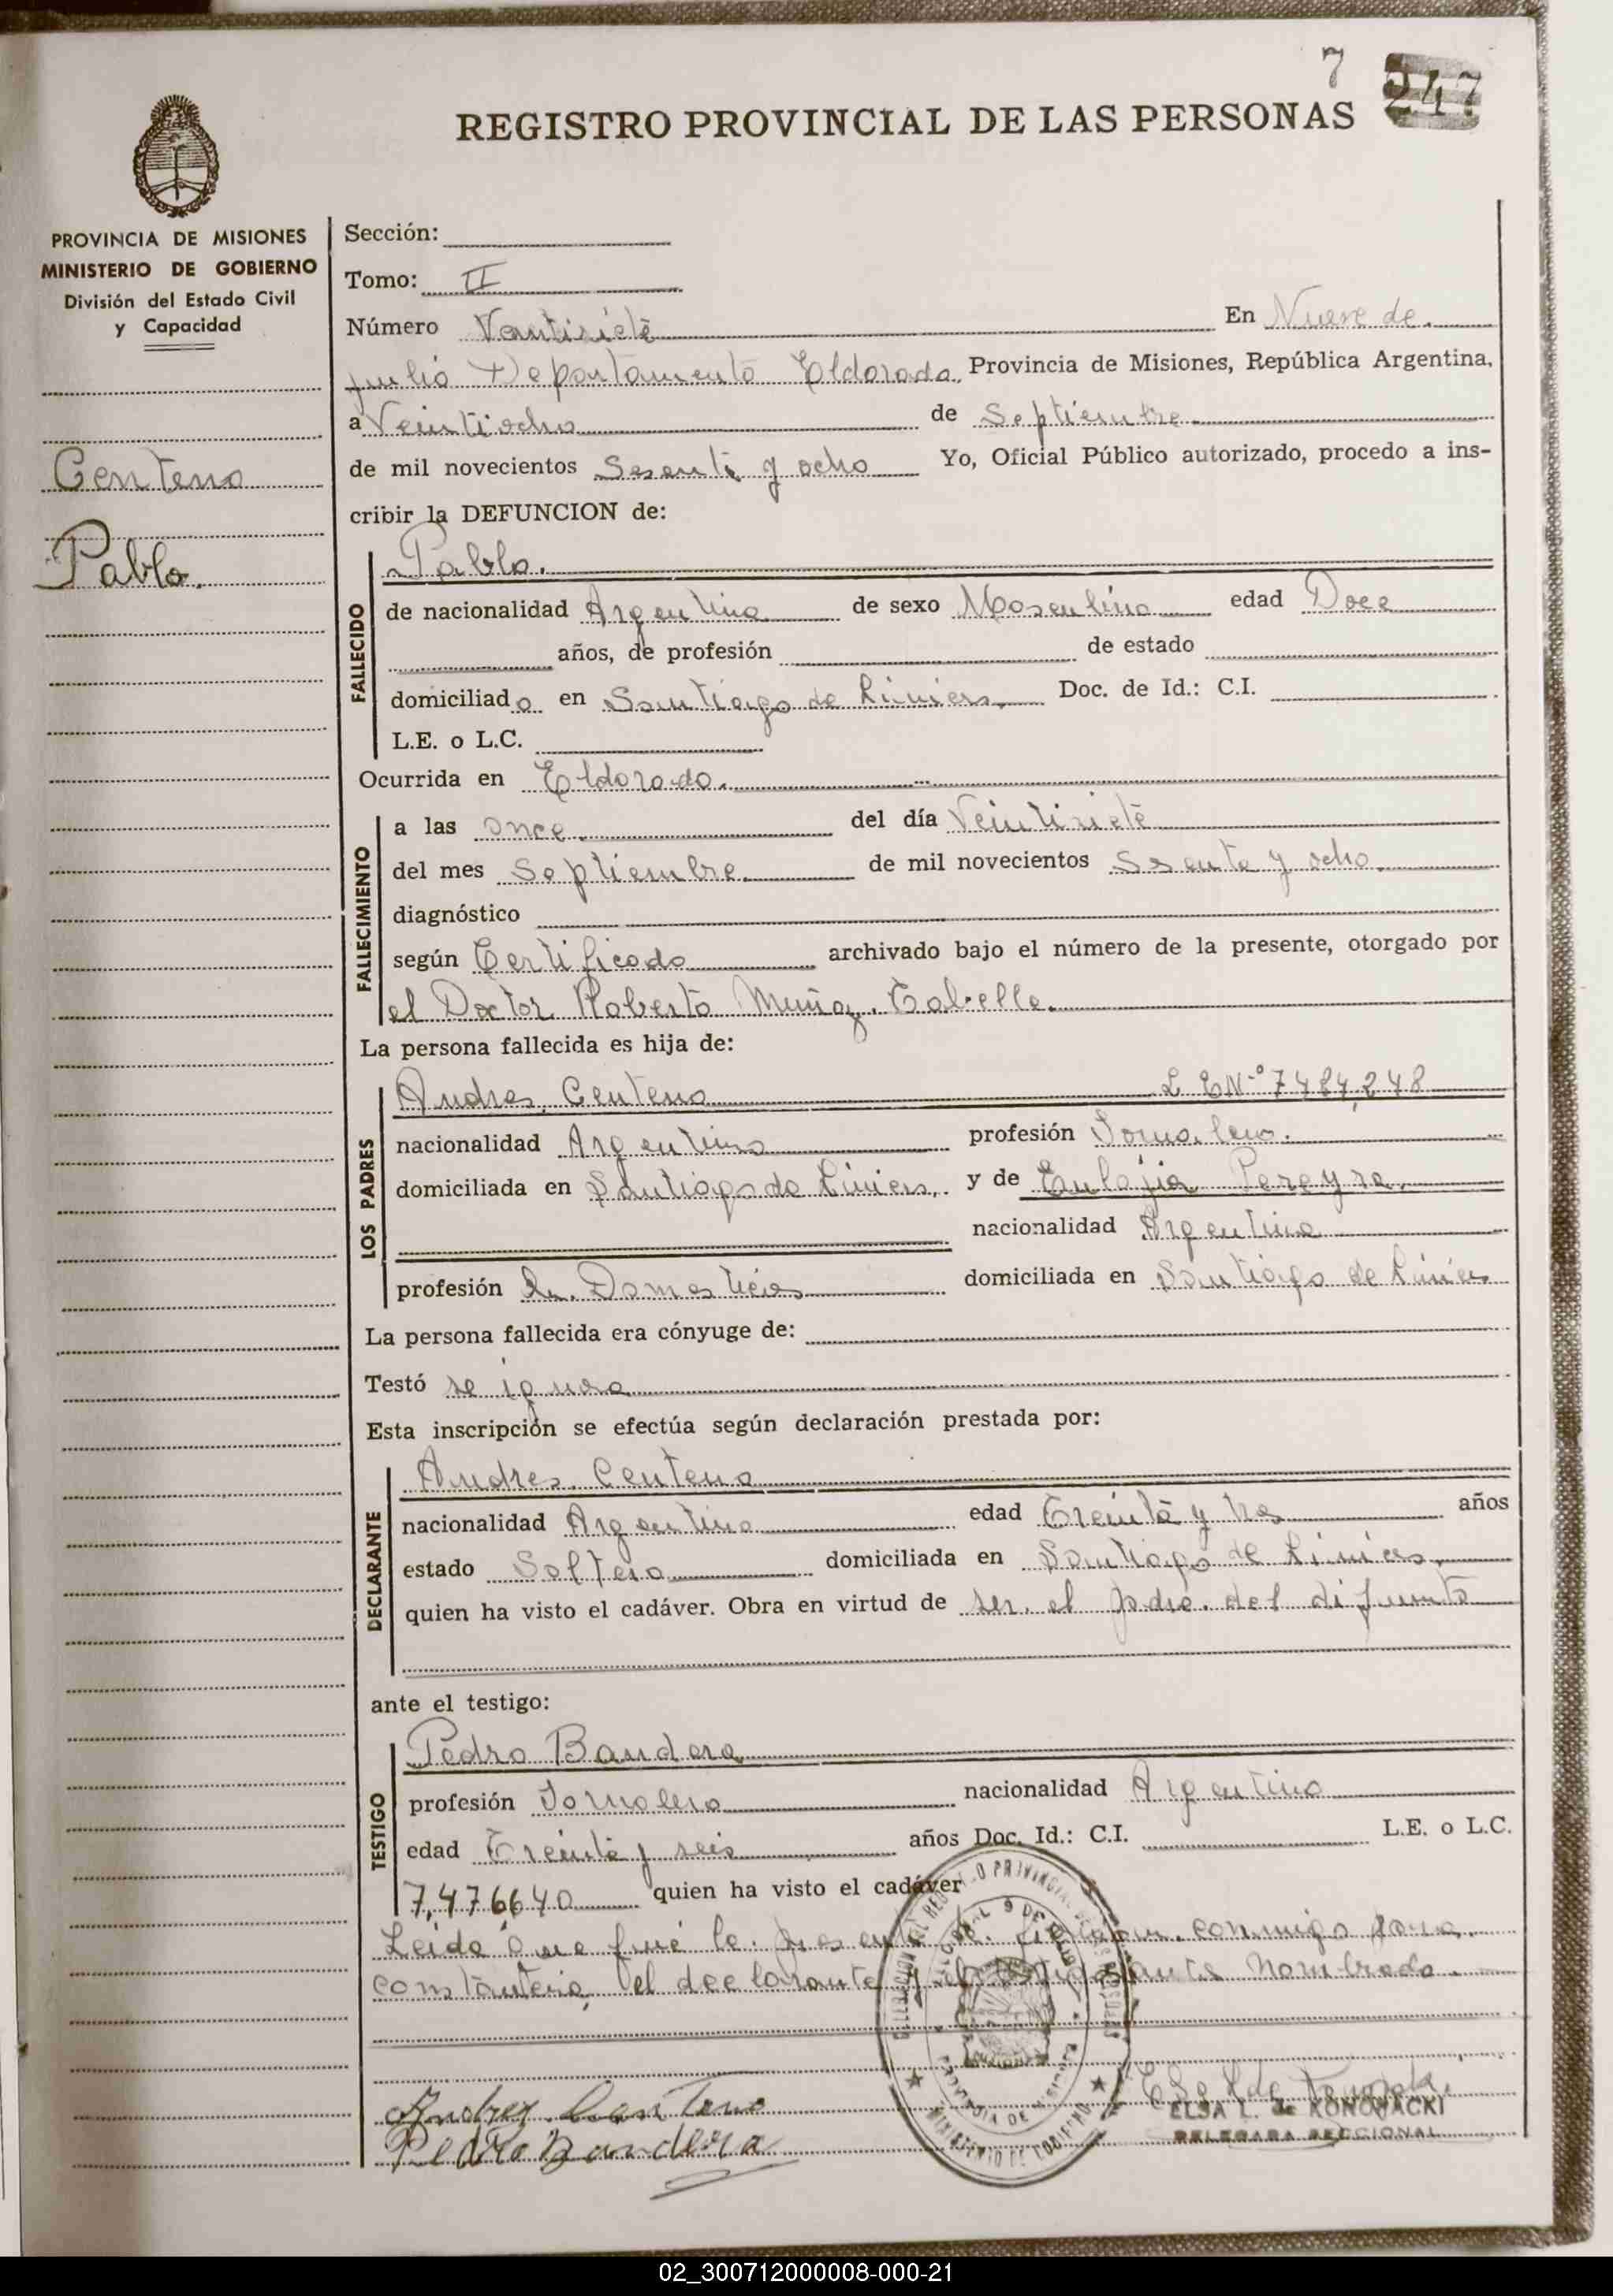 7 247
REGISTRO PROVINCIAL DE LAS PERSONAS
PROVINCIA DE MISIONES
MINISTERIO DE GOBIERNO
División del Estado Civil
y Capacidad
Centeno
Pablo.
Sección:
Tomo: II
Número Ventisiete En Nueve de
julio Departamento Eldorado, Provincia de Misiones, República Argentina,
a Veintiocho de Septiembre
de mil novecientos Sesenta y ocho Yo, Oficial Público autorizado, procedo a ins-
cribir la DEFUNCION de:
FALLECIDO
Pablo.
de nacionalidad Argentina de sexo Masculino edad Doce
años, de profesión de estado
domiciliado en Santiago de Liniers, Doc. de Id.: C.I.
L.E. o L.C.
Ocurrida en Eldorado.
FALLECIMIENTO
a las once. del día Veintisiete
del mes Septiembre. de mil novecientos Ssenta y ocho.
diagnóstico
según Certificado archivado bajo el número de la presente, otorgado por
el Doctor Roberto Muñoz.
La persona fallecida es hija de:
LOS PADRES
Andres Centeno L E Nº 7484,248
nacionalidad Argentino profesión Jornalero.
domiciliada en Santiago de Liniers, y de Eulojia Pereyra,
nacionalidad Argentina
profesión Domesticos domiciliada en Santiago de Liniers
La persona fallecida era cónyuge de:
Testó se ignora
Esta inscripción se efectúa según declaración prestada por:
DECLARANTE
Andres Centeno
nacionalidad Argentino edad Treinta y tres años
estado Soltero domiciliada en Santiago de Liniers,
quien ha visto el cadáver. Obra en virtud de ser el padre del difunto
ante el testigo:
TESTIGO
Pedro Bandera
profesión Jornalero nacionalidad Argentino
edad Treinta y seis años Doc. Id.: C.I. L.E. o L.C.
7,476640 quien ha visto el cadáver
Leida que fué la presente conmigo para
constancia, el declarante y nombrado.
Andres Centeno
Pedro Bandera
ELSA L. de KONOPACKI
DELEGADA SECCIONAL
MINISTERIO DE GOBIERNO
02_300712000008-000-21